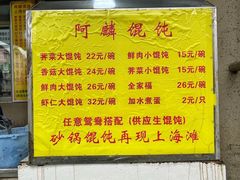 阿麟馄饨
荠菜大馄饨 22元/碗 鲜肉小馄饨 15元/碗
香菇大馄饨 24元/碗 荠菜小馄饨 15元/碗
鲜肉大馄饨 26元/碗 全家福 26元/碗
虾仁大馄饨 32元/碗 加水煮蛋 2元/只
任意鸳鸯搭配(供应生馄饨)
砂锅馄饨再现上海滩